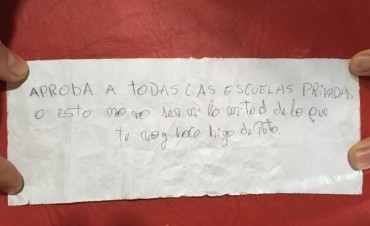 APROBA A TODAS LAS ESCUELAS PRIVADAS
o esto no va ser ni la mitad de lo que
te voy hacer hijo de Puta.